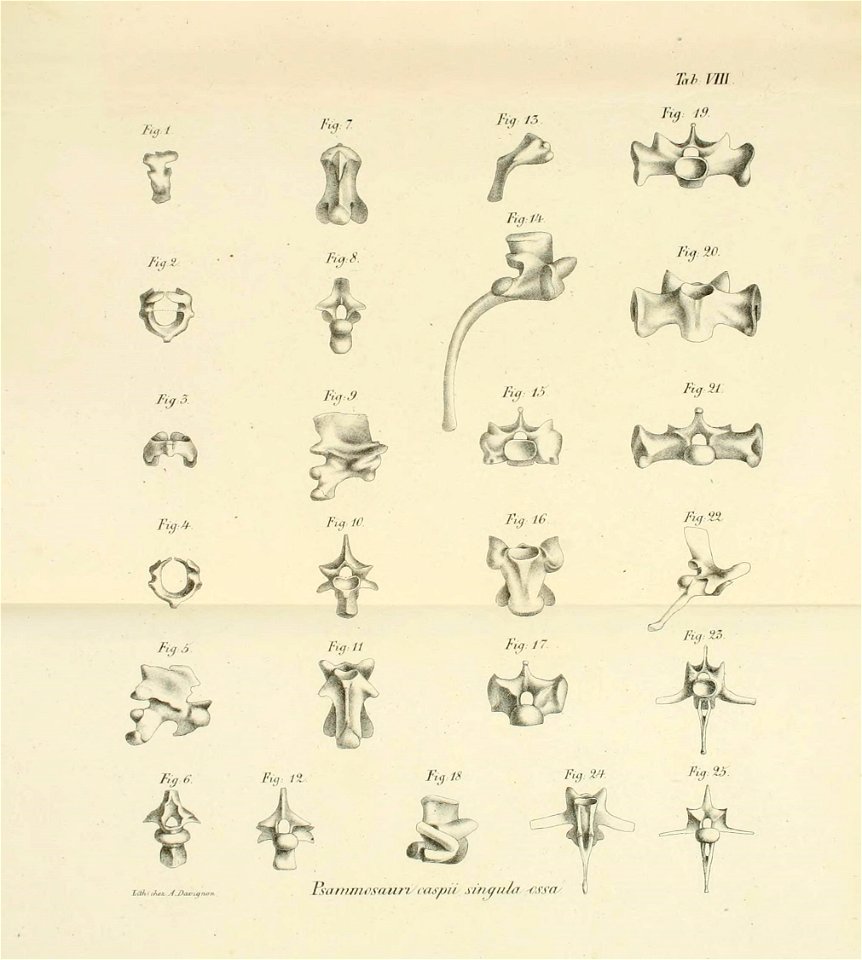 Tab. VIII.
Fig. 1
Fig. 7.
Fig. 13.
Fig. 19.
Fig. 2.
Fig. 8.
Fig. 14.
Fig. 20.
Fig. 3.
Fig. 9
Fig. 15
Fig. 21.
Fig. 4.
Fig. 10.
Fig. 16
Fig. 22
Fig. 5.
Fig. 11
Fig. 17.
Fig. 23.
Fig. 6.
Fig. 12.
Fig. 18
Fig. 24.
Fig. 25.
Lith: chez A. Davignon.
Psammosauri caspii singula ossa